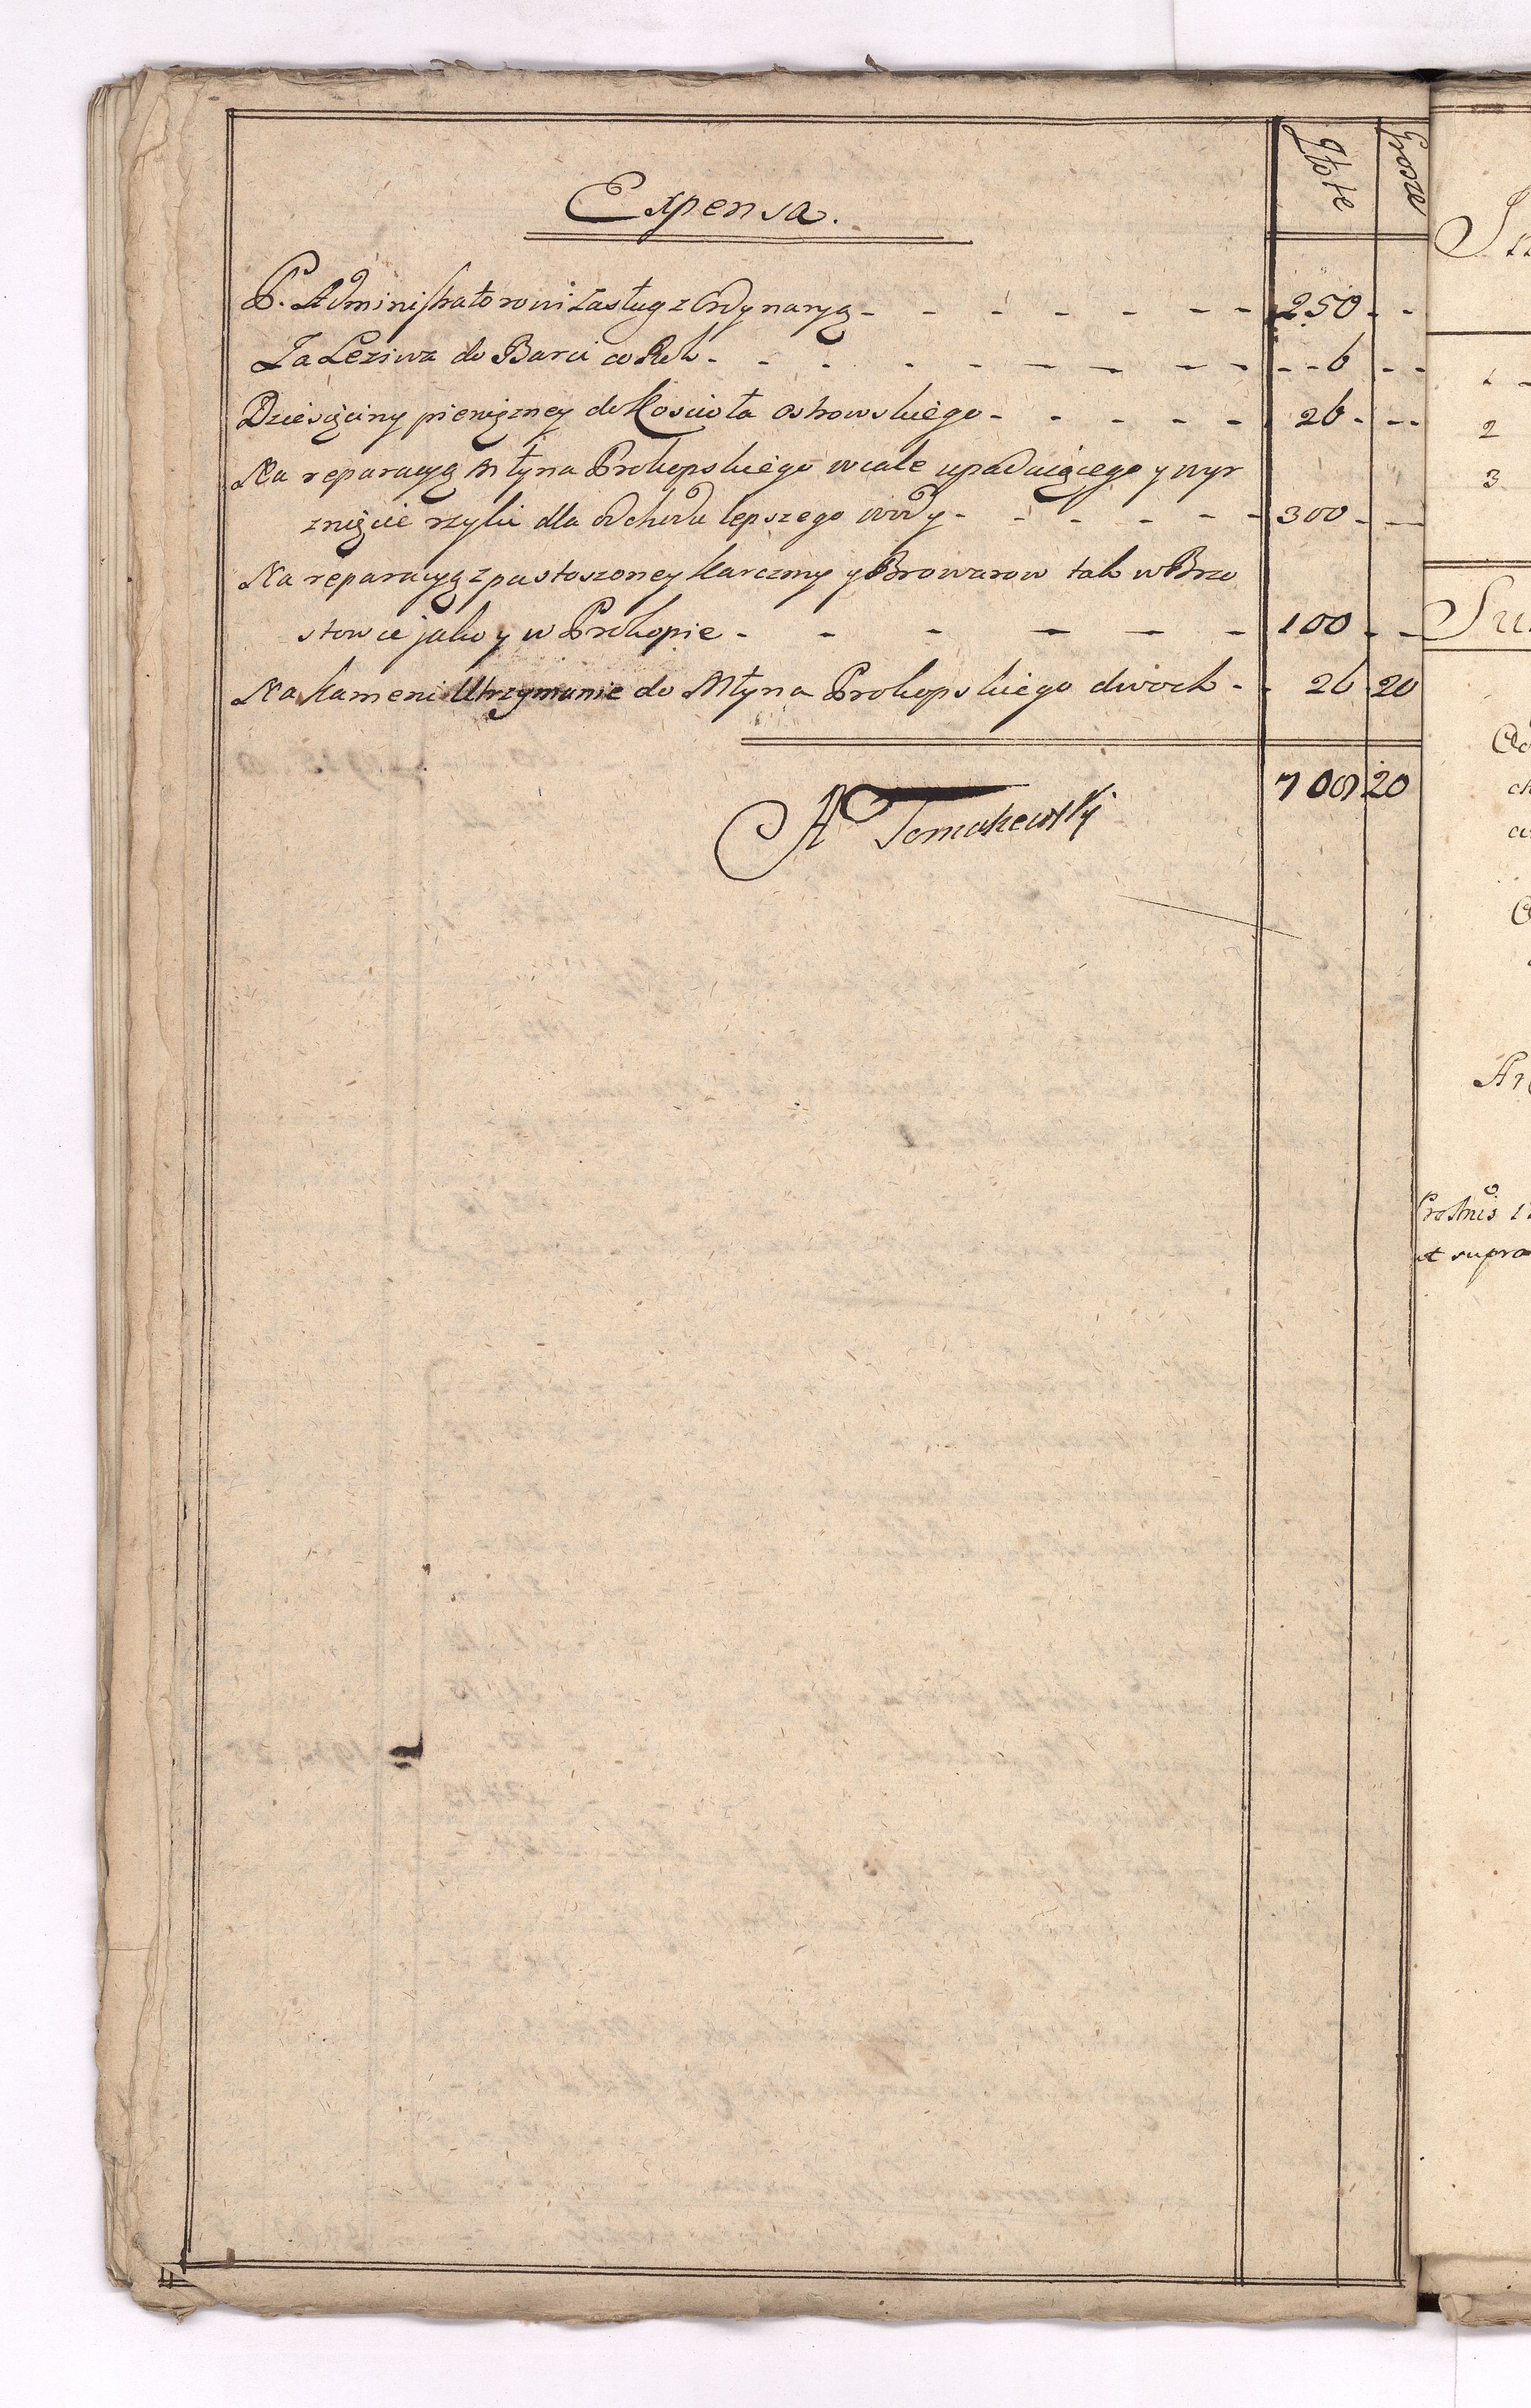 Złote Grosze
Expensa.
P. Administratorowi zasług z Ordynaryą - - - - - - - - 250 - -
Za Leziwa do Barci co Rok - - - - - - - - - - - 6 - - -
Dziesięciny pieniężney do Kościoła ostrowskiego - - - - - 26 - - -
Na reparacyą Młyna Prokopskiego wcale upadaiącego y wyr
znięcie rzyki dla odchodu lepszego wody - - - - - - 300 - -
Na reparacyą zpustoszoney Karczmy y Browarow tak w Brzo
stowce jako y w Prokopie - - - - - - 100 - -
Na kameni Utrzymanie do Młyna Prokopskiego dwoch - - 26 20
709 20
A Tomakewsky
1 -
2
3
Prostnis
ut supra